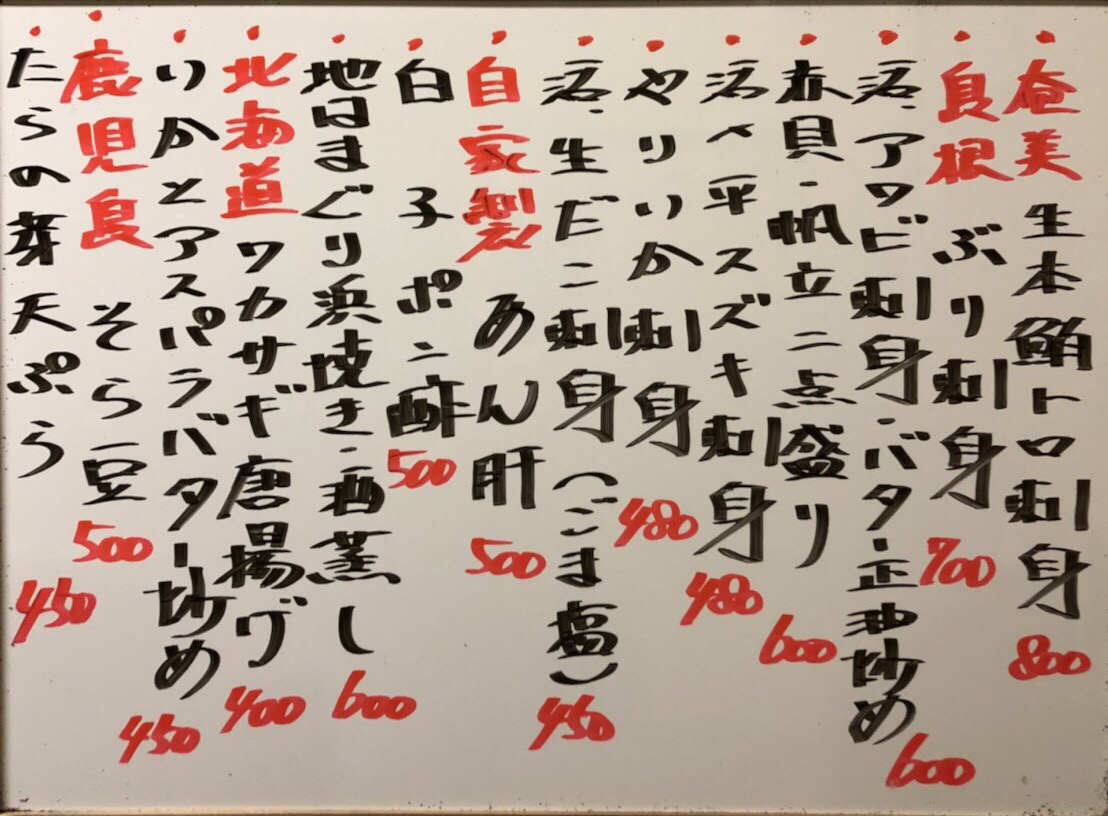 奄美 生本鮪トロ刺身 800
島根 ぶり刺身 700
活、アワビ刺身・バター正油炒め 600
赤貝・帆立二点盛り 600
活〆平スズキ刺身 480
やりいか刺身 480
活、生だこ刺身(ごま塩) 450
自家製 あん肝 500
白子ポン酢 500
地はまぐり浜焼き・酒蒸し 600
北海道 ワカサギ唐揚げ 400
いかとアスパラバター炒め 450
鹿児島 そら豆 500
たらの芽天ぷら 450